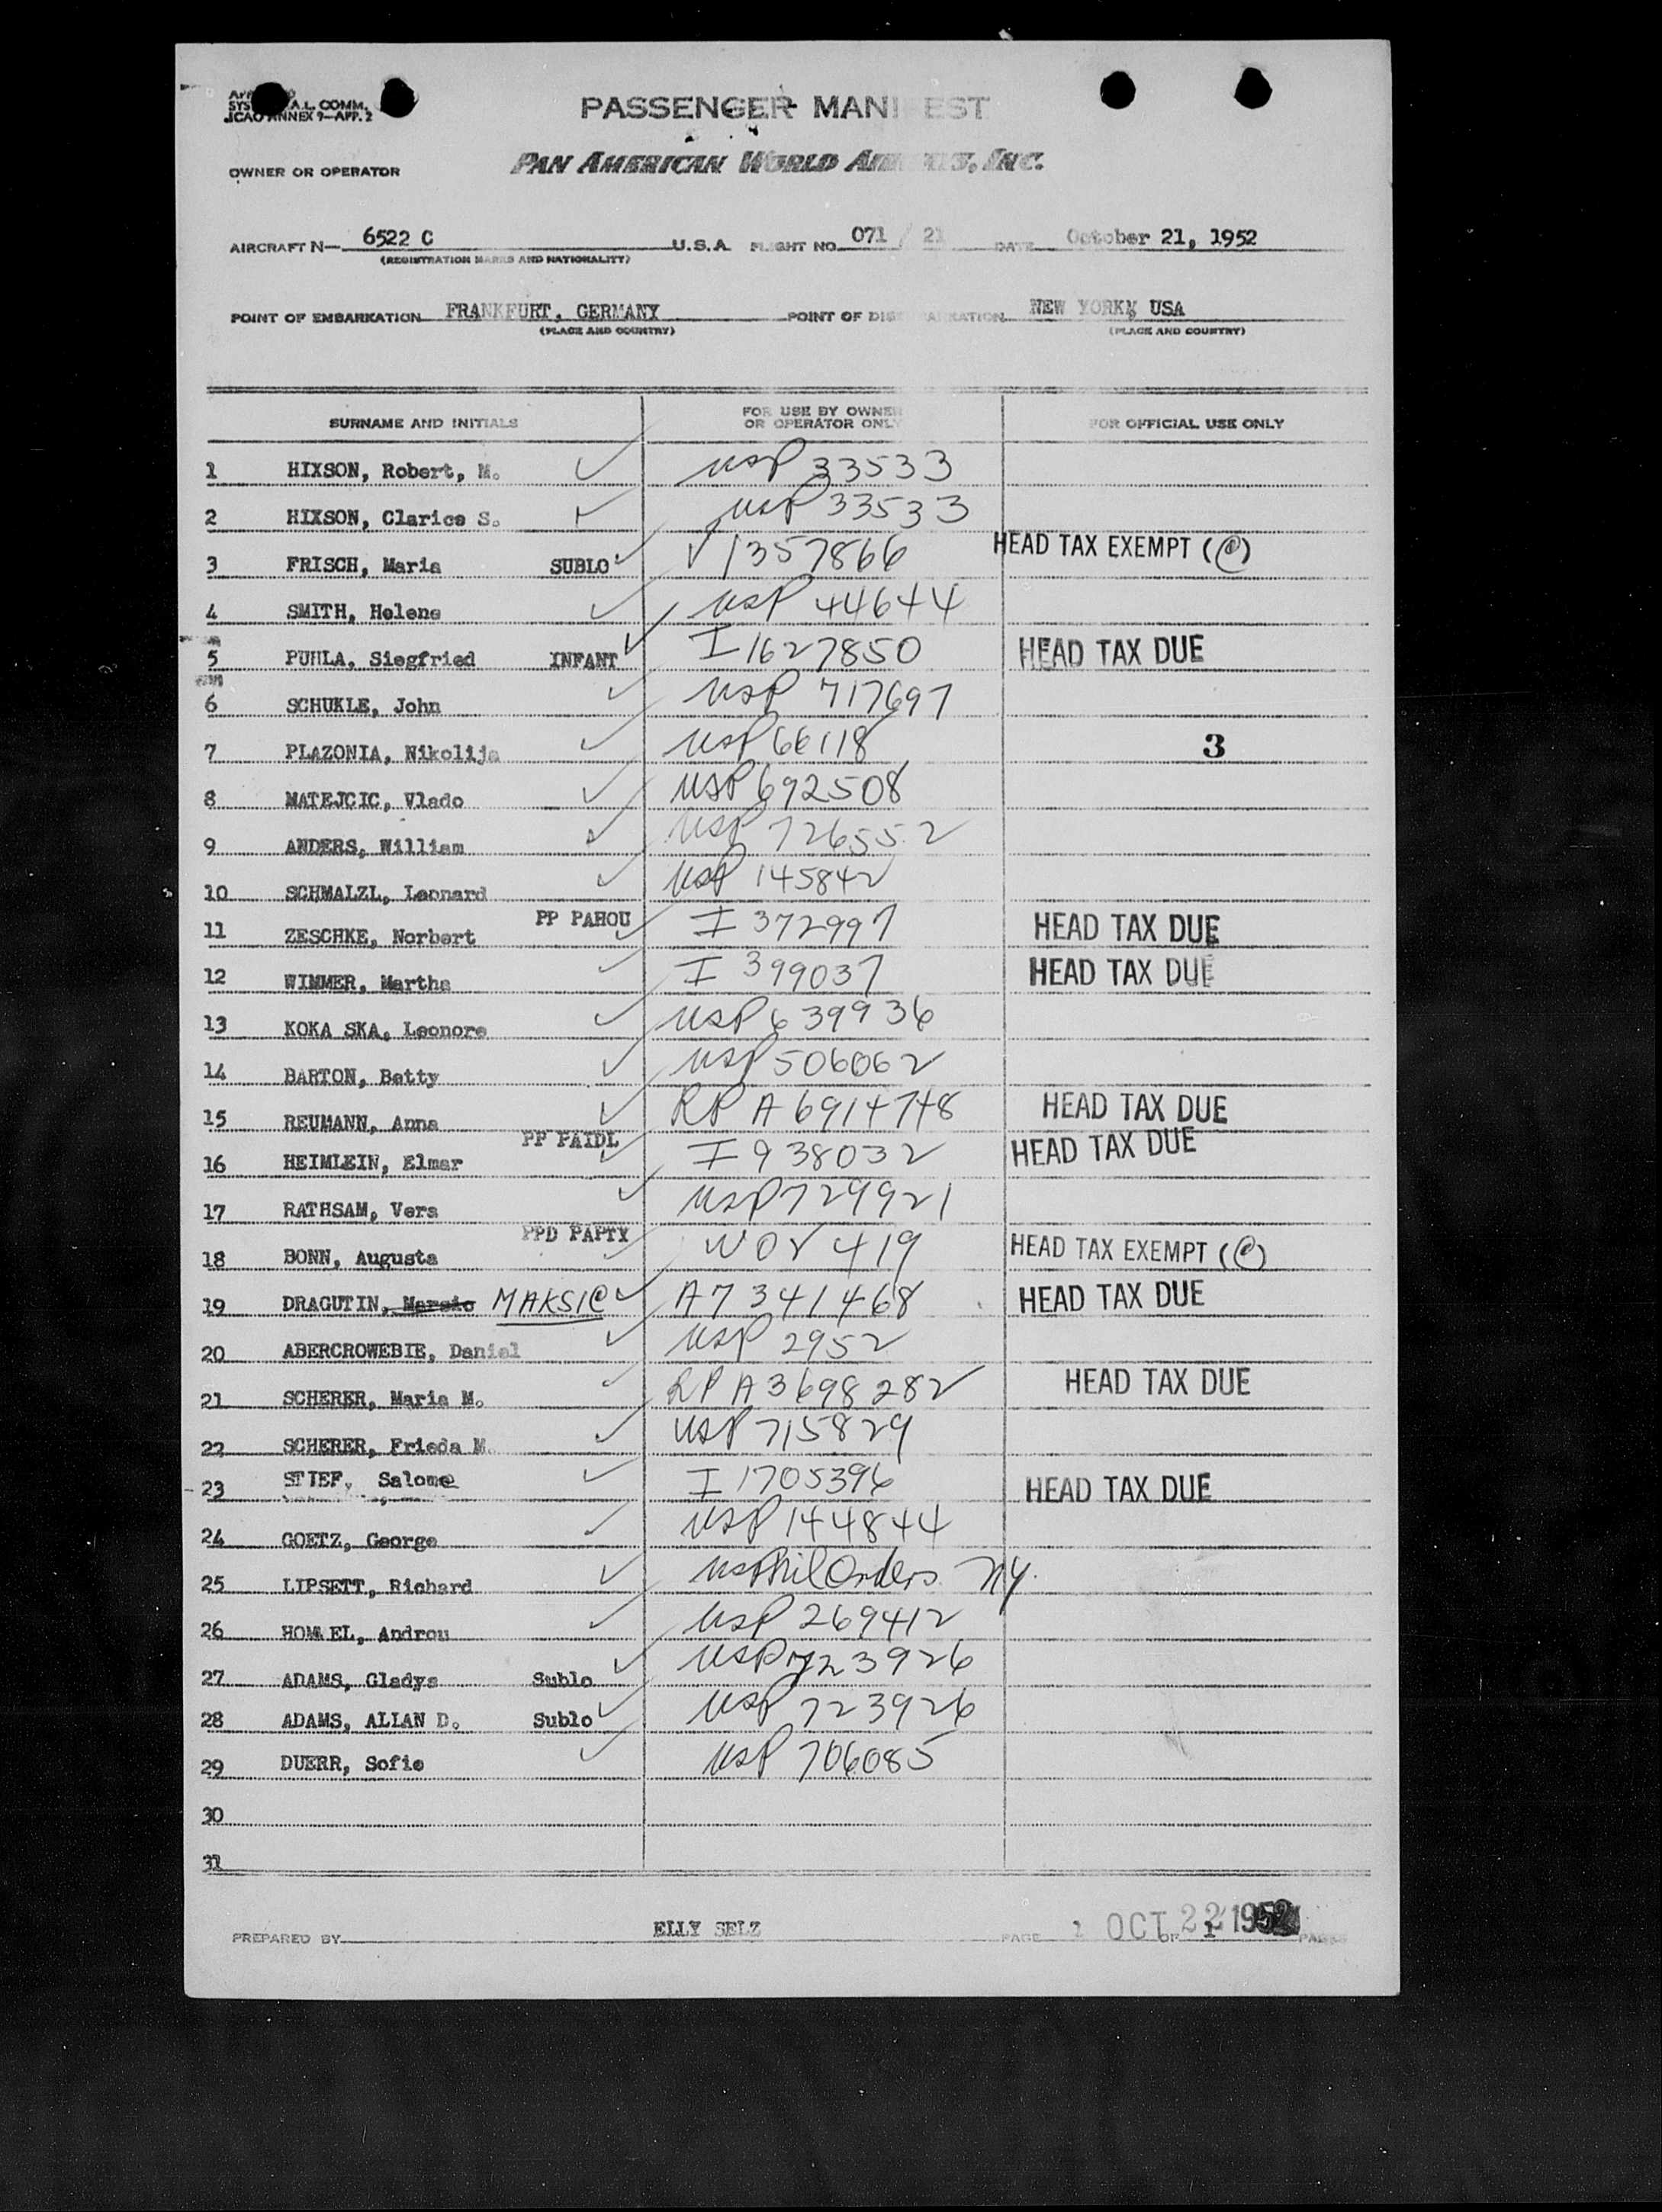 A.L. COMM.
ICAO ANNEX 9—APP. 2
PASSENGER MANIFEST
OWNER OR OPERATOR PAN AMERICAN WORLD AIRWAYS, INC.
AIRCRAFT N— 6522 C U.S.A. FLIGHT NO. 071 / 21 DATE October 21, 1952
(REGISTRATION MARKS AND NATIONALITY)
POINT OF EMBARKATION FRANKFURT, GERMANY POINT OF DISEMBARKATION NEW YORK, USA
(PLACE AND COUNTRY) (PLACE AND COUNTRY)
SURNAME AND INITIALS FOR USE BY OWNER OR OPERATOR ONLY FOR OFFICIAL USE ONLY
1 HIXSON, Robert, M. USP 33533
2 HIXSON, Clarice S. USP 33533
3 FRISCH, Maria SUBLO V 1357866 HEAD TAX EXEMPT (C)
4 SMITH, Helene USP 44644
5 PUHLA, Siegfried INFANT I 1627850 HEAD TAX DUE
6 SCHUKLE, John USP 717697
7 PLAZONIA, Nikolija USP 66118 3
8 MATEJCIC, Vlado USP 692508
9 ANDERS, William USP 726552
10 SCHMALZL, Leonard USP 145842
11 ZESCHKE, Norbert PP PAHOU I 372997 HEAD TAX DUE
12 WIMMER, Martha I 399037 HEAD TAX DUE
13 KOKA SKA, Leonore USP 639936
14 BARTON, Betty USP 506062
15 REUMANN, Anna RP A6914748 HEAD TAX DUE
16 HEIMLEIN, Elmar PP PAIDL I 938032 HEAD TAX DUE
17 RATHSAM, Vera USP 729921
18 BONN, Augusta PPD PAPTX 419 HEAD TAX EXEMPT (C)
19 DRAGUTIN, MAKSIC A7341468 HEAD TAX DUE
20 ABERCROWEBIE, Daniel USP 2952
21 SCHERER, Maria M. RP A3698282 HEAD TAX DUE
22 SCHERER, Frieda M. USP 715829
23 STIEF, Salome I 1705396 HEAD TAX DUE
24 GOETZ, George USP 144844
25 LIPSETT, Richard US Mil Orders NY.
26 HOMMEL, Androu USP 269412
27 ADAMS, Gladys Sublo USP 723926
28 ADAMS, ALLAN D. Sublo USP 723926
29 DUERR, Sofie USP 706085
30
31
PREPARED BY ELLY SELZ PAGE 1 OF 1 PAGES
OCT 22 1952